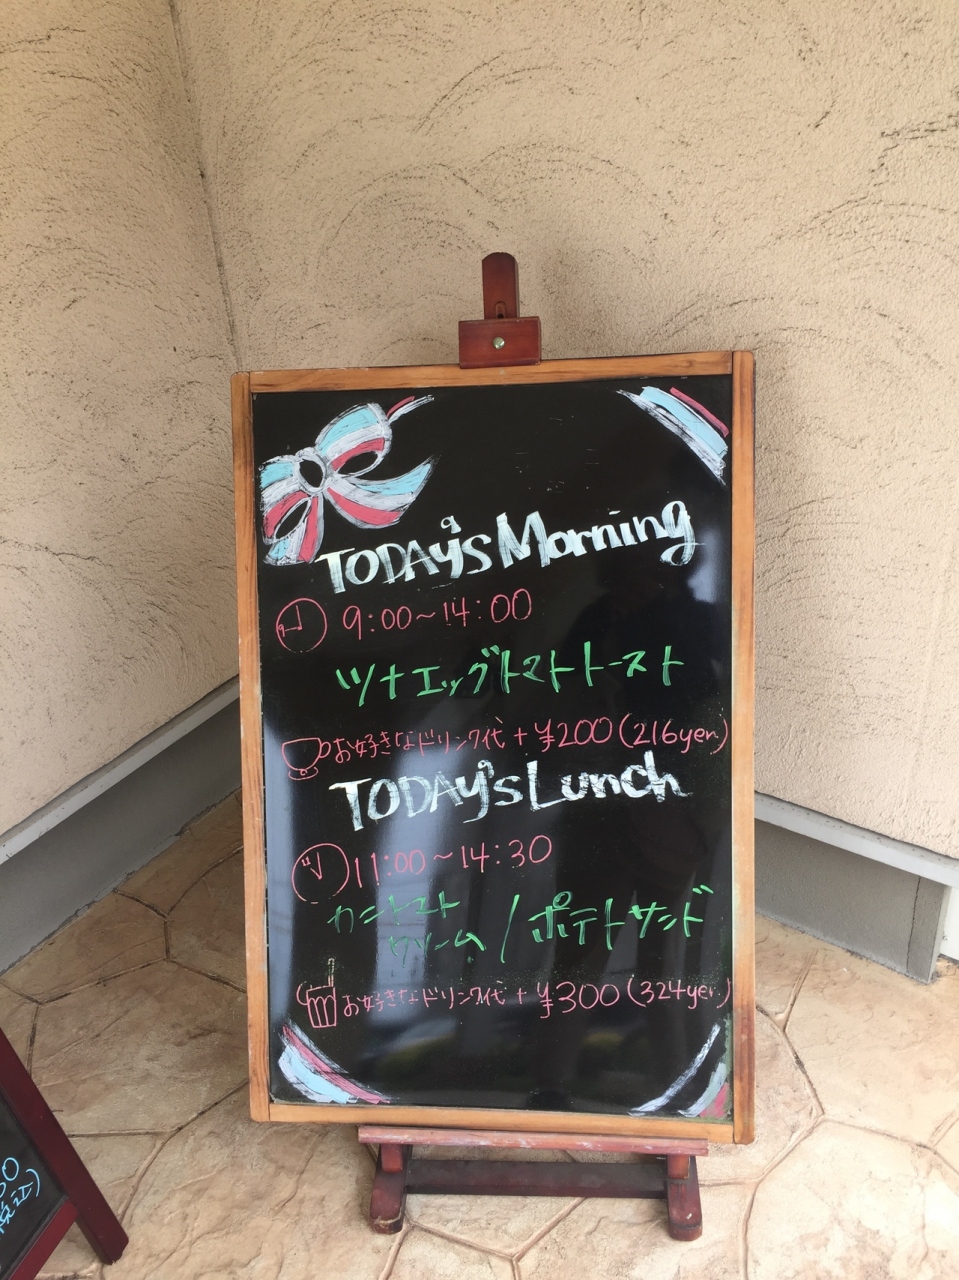 TODAy's Morning
9:00～14:00
ツナエッグトマトトースト
お好きなドリンク代 + ¥200(216yen)
TODAy's Lunch
11:00～14:30
カニトマトクリーム / ポテトサンド
お好きなドリンク代 + ¥300(324yen)